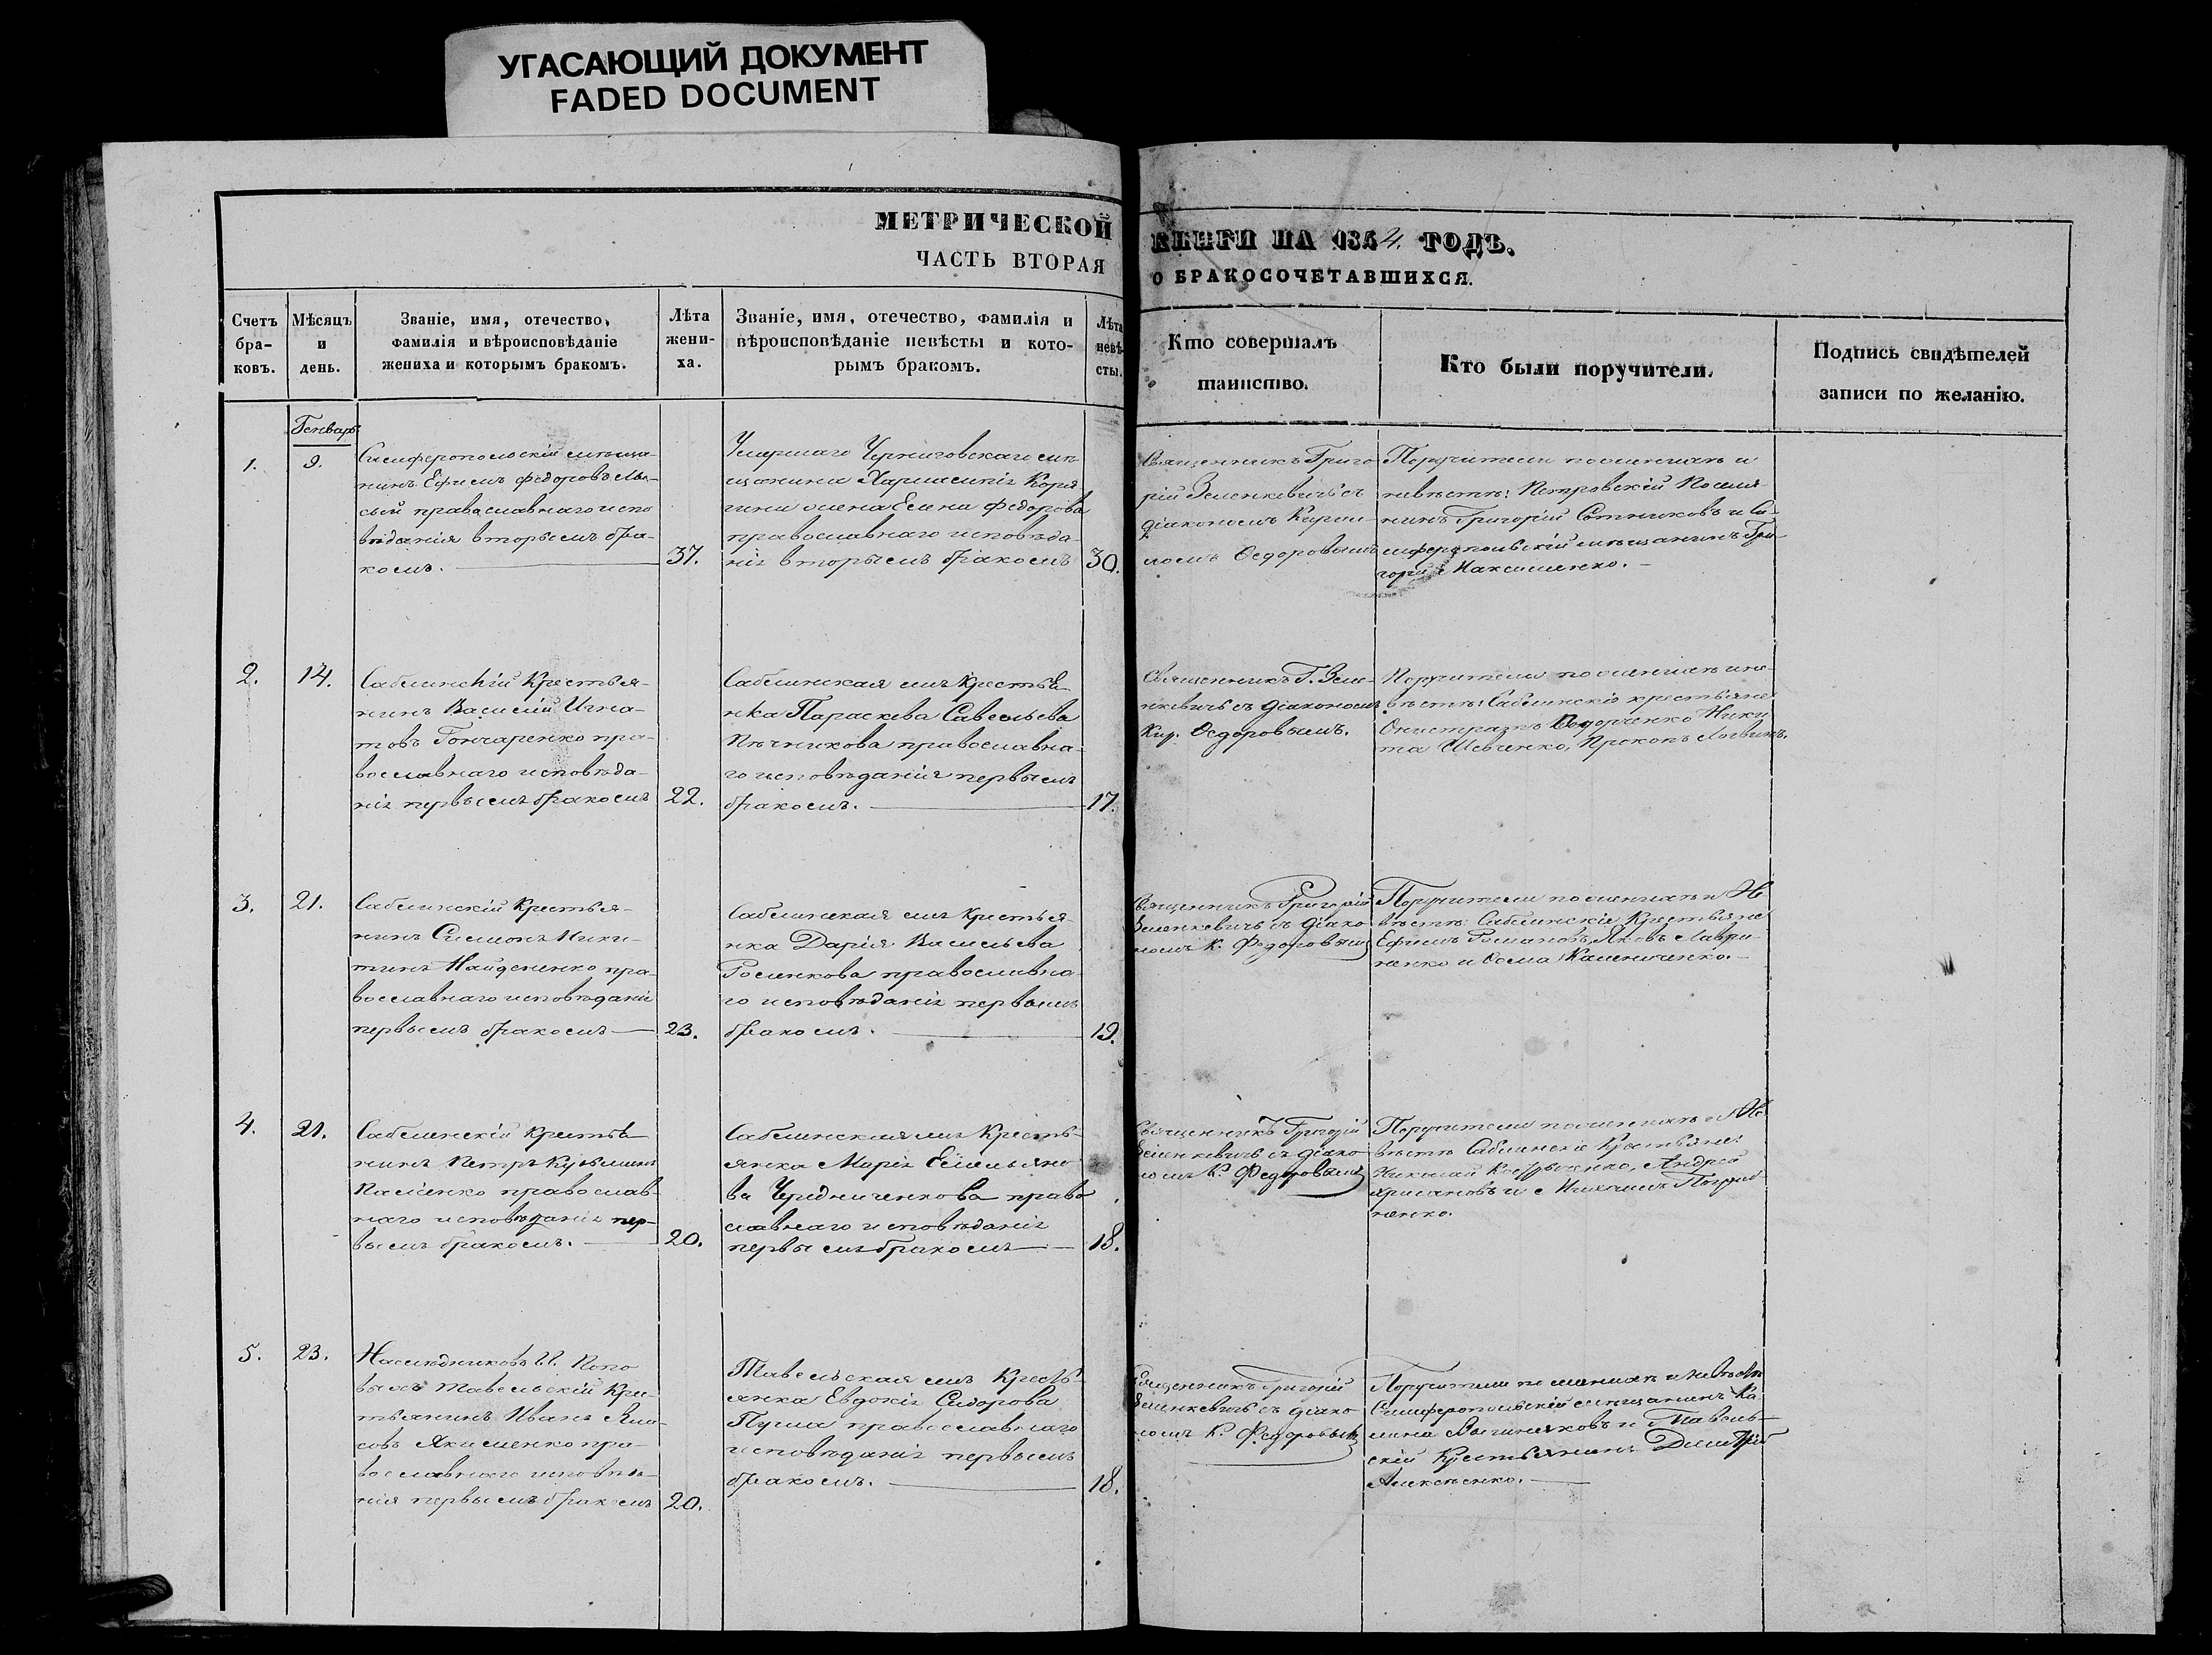 УГАСАЮЩИЙ ДОКУМЕНТ
FADED DOCUMENT
МЕТРИЧЕСКОЙ
ЧАСТЬ ВТОРАЯ
КНИГИ НА 1854. ГОДЪ.
О БРАКОСОЧЕТАВШИХСЯ.
Счетъ
бра-
ковъ.
Мѣсяцъ
и
день.
Званіе, имя, отечество,
фамилія и вѣроисповѣданіе
жениха и которымъ бракомъ.
Лѣта
жени-
ха.
Званіе, имя, отечество, фамилія и
вѣроисповѣданіе невѣсты и кото-
рымъ бракомъ.
Лѣта
невѣ-
сты.
Кто совершалъ
таинство.
Кто были поручители.
Подпись свидѣтелей
записи по желанію.
Генварь
1.
9.
Симферопольскій мѣща-
нинъ Ефимъ Федоровъ
православнаго испо
вѣданія вторымъ бра-
комъ.
37.
Умершаго Черниговскаго мѣ
щанина
жена Елена Федорова
православнаго исповѣда-
нія вторымъ бракомъ
30.
Священникъ Григо
рій Зеленкевичь съ
діакономъ Кирил-
ломъ Ѳедоровымъ
Поручители по женихѣ и
невѣстѣ: Петровскій Поселя-
нинъ Григорій Сотниковъ и Си-
мферопольскій мѣщанинъ Гри-
горій Максименко.
2.
14.
Саблинскій Крестья-
нинъ Василій Игна-
товъ Гончаренко пра-
вославнаго исповѣда-
нія первымъ бракомъ
22.
Саблинская же крестья-
нка Параскева Савельева
Пѣчникова православна-
го исповѣданія первымъ
бракомъ.
17.
Священникъ Г. Зеле-
нкевичь съ діакономъ
Кир. Ѳедоровымъ.
Поручители по женихѣ и не-
вѣстѣ: Саблинскіе крестьяне
Ники-
та Шевченко, Прокопъ Логвинъ.
3.
21.
Саблинскій Крестья-
нинъ Симеонъ Ники-
тинъ Найдененко пра-
вославнаго исповѣданія
первымъ бракомъ
23.
Саблинская же крестья-
нка Дарія Васильева
Роменкова православна-
го исповѣданія первымъ
бракомъ.
19.
Священникъ Григорій
Зеленкевичь съ діако-
номъ К. Федоровымъ
Поручители по женихѣ и Не
вѣстѣ: Саблинскіе Крестьяне
Ефимъ Романовъ, Яковъ Лаври-
ненко и Ѳома Калениченко.
4.
21.
Саблинскій Крестья-
нинъ Петръ Кузьминъ
православ-
наго исповѣданія пер-
вымъ бракомъ.
20.
Саблинская же Кресть-
янка Марія Емельяно-
ва Чередниченкова право
славнаго исповѣданія
первымъ бракомъ
18.
Священникъ Григорій
Зеленкевичь съ діако
номъ К. Федоровымъ
Поручители по женихѣ и Не
вѣстѣ Саблинскіе Крестьяне:
Николай Андрей
и Михаилъ
ненко.
5.
23.
Наслѣдниковъ Г.Г. Попо
выхъ Тавельскій Кре-
стьянинъ Иванъ
Якименко пра-
вославнаго исповѣда-
нія первымъ бракомъ
20.
Тавельская же Кресть-
янка Евдокія Сидорова
православнаго
исповѣданія первымъ
бракомъ.
18.
Священникъ Григорій
Зеленкевичь съ діако
номъ К. Федоровымъ
Поручители по женихѣ и невѣстѣ
Симферопольскій мѣщанинъ
и Тавель-
скій Крестьянинъ Димитрій
Алексѣенко.